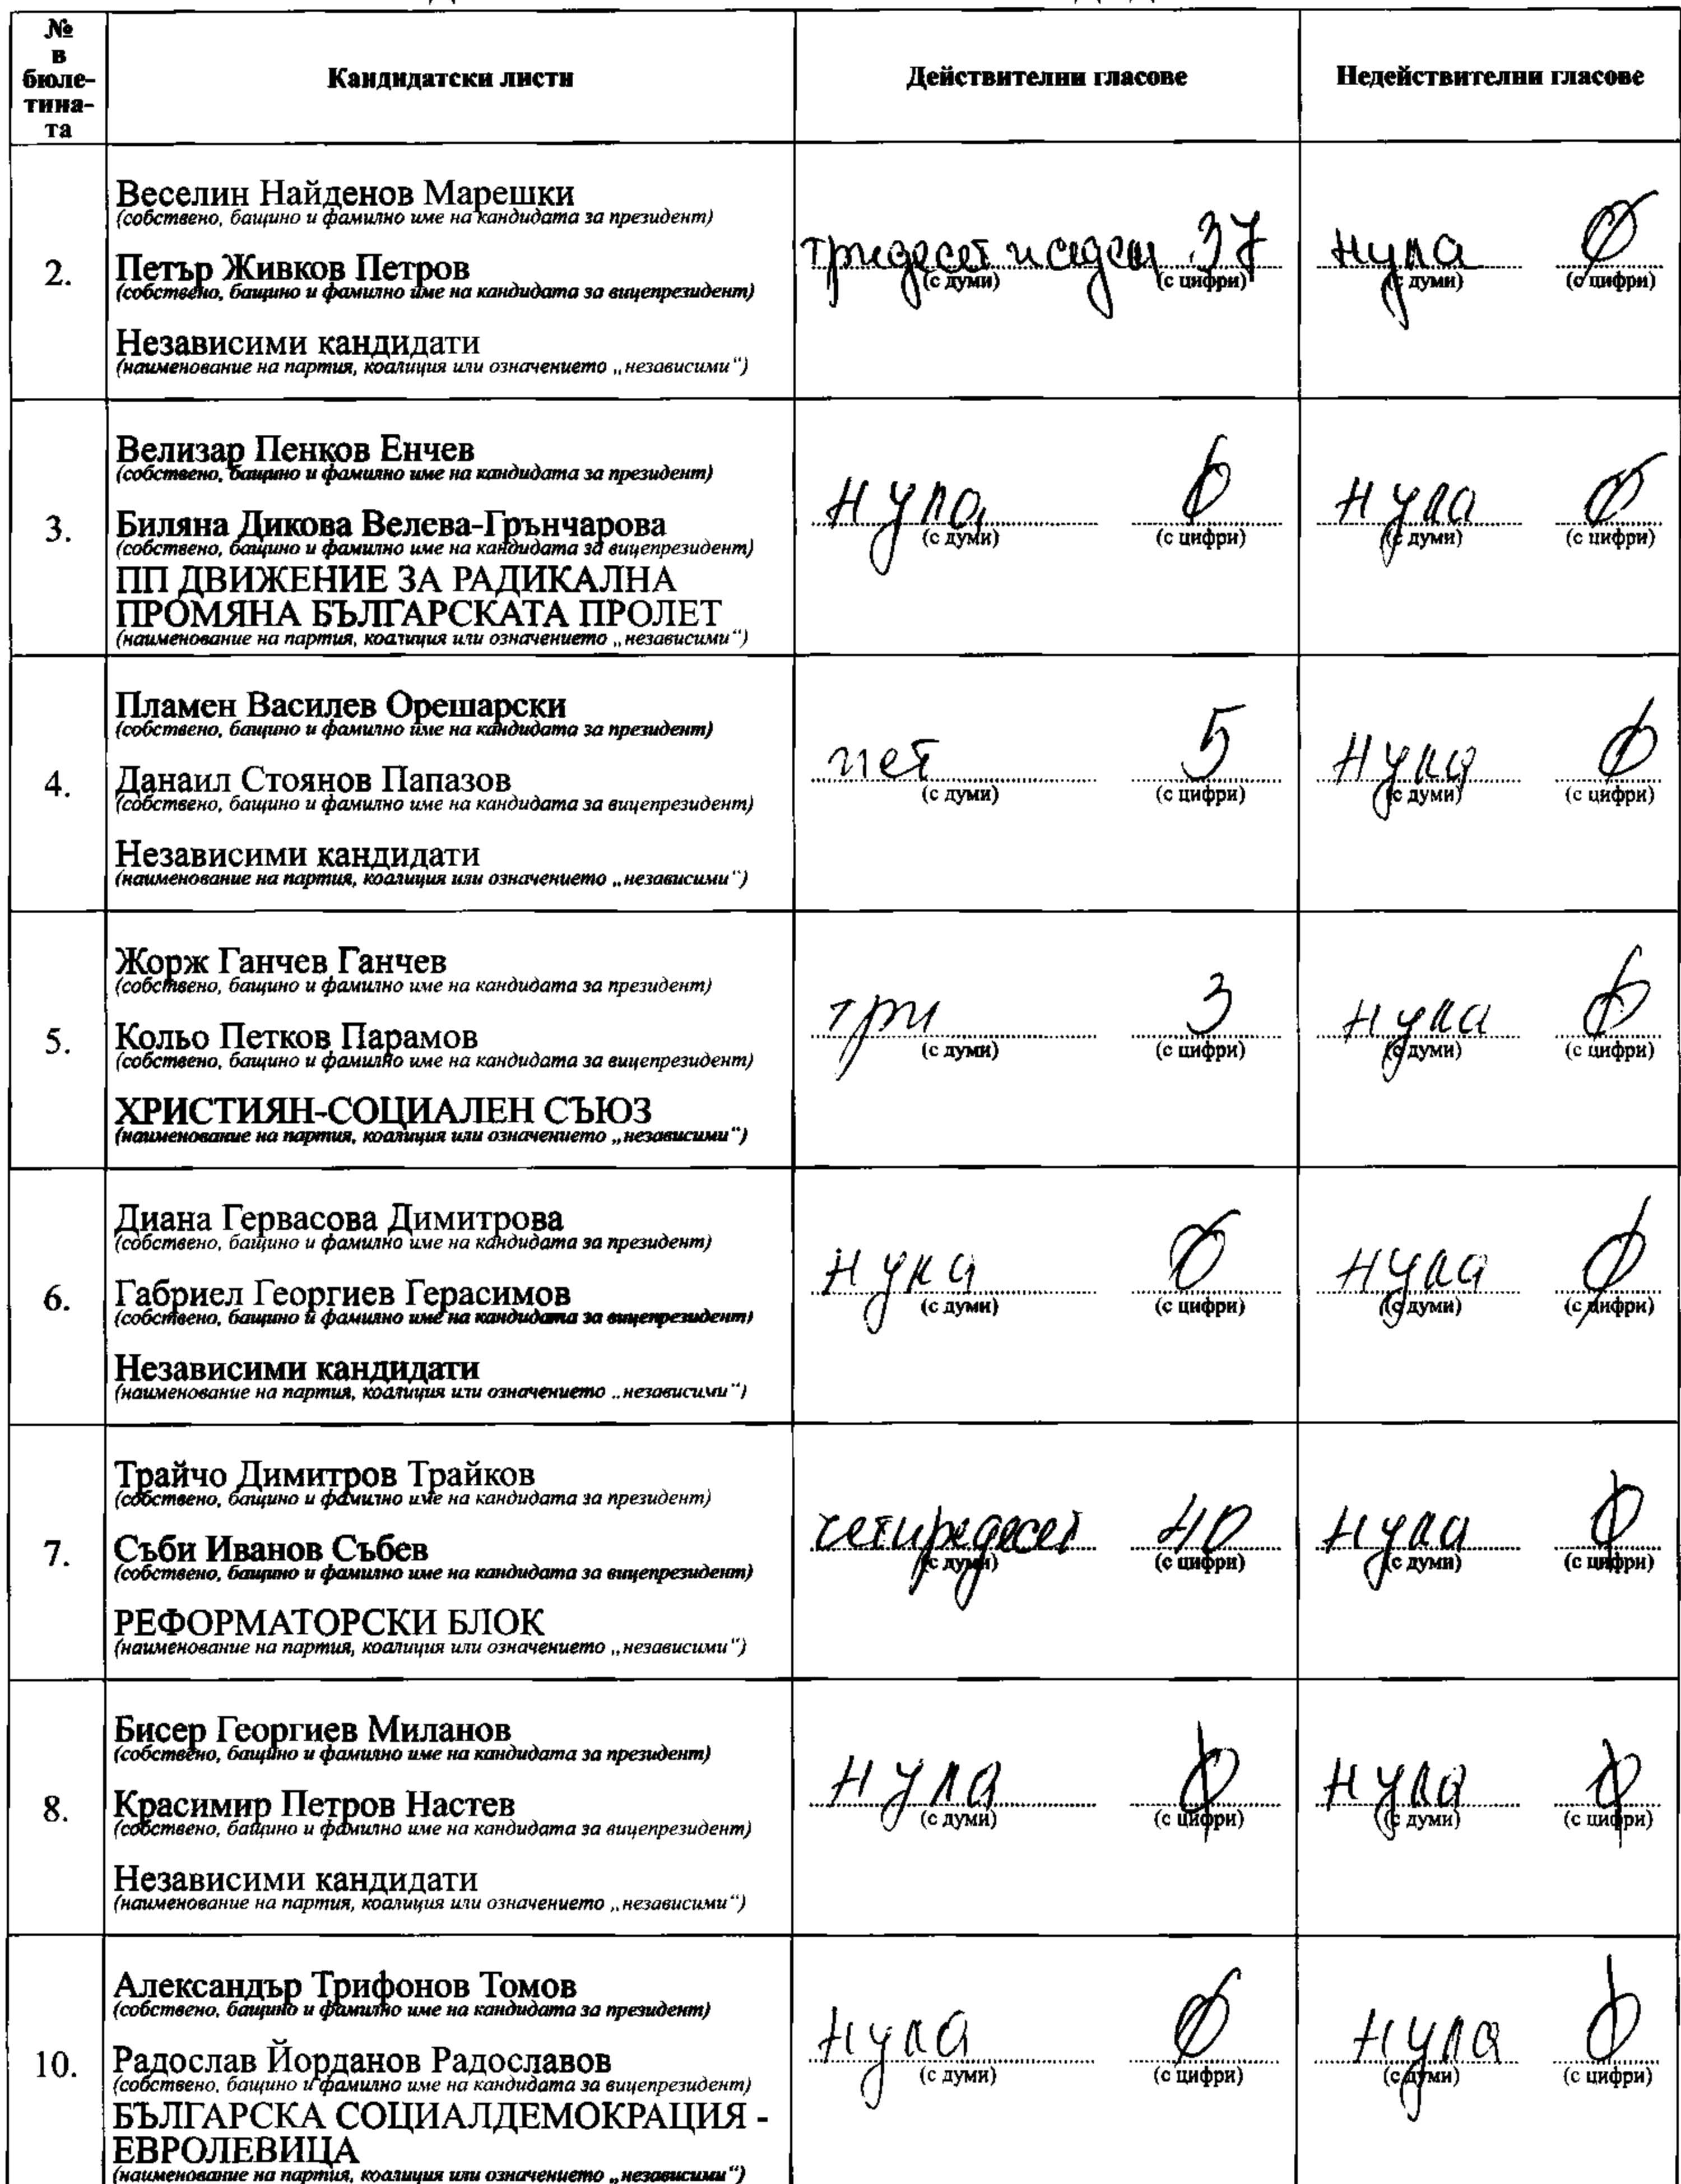 №
в
бюле-
тина-
та
Кандидатски листи
Действителни гласове
Недействителни гласове
2.
Веселин Найденов Марешки
(собствено, бащино и фамилно име на кандидата за президент)
Петър Живков Петров
(собствено, бащино и фамилно име на кандидата за вицепрезидент)
Независими кандидати
(наименование на партия, коалиция или означението „независими“)
тридесет и седем 37
(с думи) (с цифри)
нула 0
(с думи) (с цифри)
3.
Велизар Пенков Енчев
(собствено, бащино и фамилно име на кандидата за президент)
Биляна Дикова Велева-Грънчарова
(собствено, бащино и фамилно име на кандидата за вицепрезидент)
ПП ДВИЖЕНИЕ ЗА РАДИКАЛНА
ПРОМЯНА БЪЛГАРСКАТА ПРОЛЕТ
(наименование на партия, коалиция или означението „независими“)
нула 0
(с думи) (с цифри)
нула 0
(с думи) (с цифри)
4.
Пламен Василев Орешарски
(собствено, бащино и фамилно име на кандидата за президент)
Данаил Стоянов Папазов
(собствено, бащино и фамилно име на кандидата за вицепрезидент)
Независими кандидати
(наименование на партия, коалиция или означението „независими“)
пет 5
(с думи) (с цифри)
нула 0
(с думи) (с цифри)
5.
Жорж Ганчев Ганчев
(собствено, бащино и фамилно име на кандидата за президент)
Кольо Петков Парамов
(собствено, бащино и фамилно име на кандидата за вицепрезидент)
ХРИСТИЯН-СОЦИАЛЕН СЪЮЗ
(наименование на партия, коалиция или означението „независими“)
три 3
(с думи) (с цифри)
нула 0
(с думи) (с цифри)
6.
Диана Гервасова Димитрова
(собствено, бащино и фамилно име на кандидата за президент)
Габриел Георгиев Герасимов
(собствено, бащино и фамилно име на кандидата за вицепрезидент)
Независими кандидати
(наименование на партия, коалиция или означението „независими“)
нула 0
(с думи) (с цифри)
нула 0
(с думи) (с цифри)
7.
Трайчо Димитров Трайков
(собствено, бащино и фамилно име на кандидата за президент)
Съби Иванов Събев
(собствено, бащино и фамилно име на кандидата за вицепрезидент)
РЕФОРМАТОРСКИ БЛОК
(наименование на партия, коалиция или означението „независими“)
четиридесет 40
(с думи) (с цифри)
нула 0
(с думи) (с цифри)
8.
Бисер Георгиев Миланов
(собствено, бащино и фамилно име на кандидата за президент)
Красимир Петров Настев
(собствено, бащино и фамилно име на кандидата за вицепрезидент)
Независими кандидати
(наименование на партия, коалиция или означението „независими“)
нула 0
(с думи) (с цифри)
нула 0
(с думи) (с цифри)
10.
Александър Трифонов Томов
(собствено, бащино и фамилно име на кандидата за президент)
Радослав Йорданов Радославов
(собствено, бащино и фамилно име на кандидата за вицепрезидент)
БЪЛГАРСКА СОЦИАЛДЕМОКРАЦИЯ -
ЕВРОЛЕВИЦА
(наименование на партия, коалиция или означението „независими“)
нула 0
(с думи) (с цифри)
нула 0
(с думи) (с цифри)